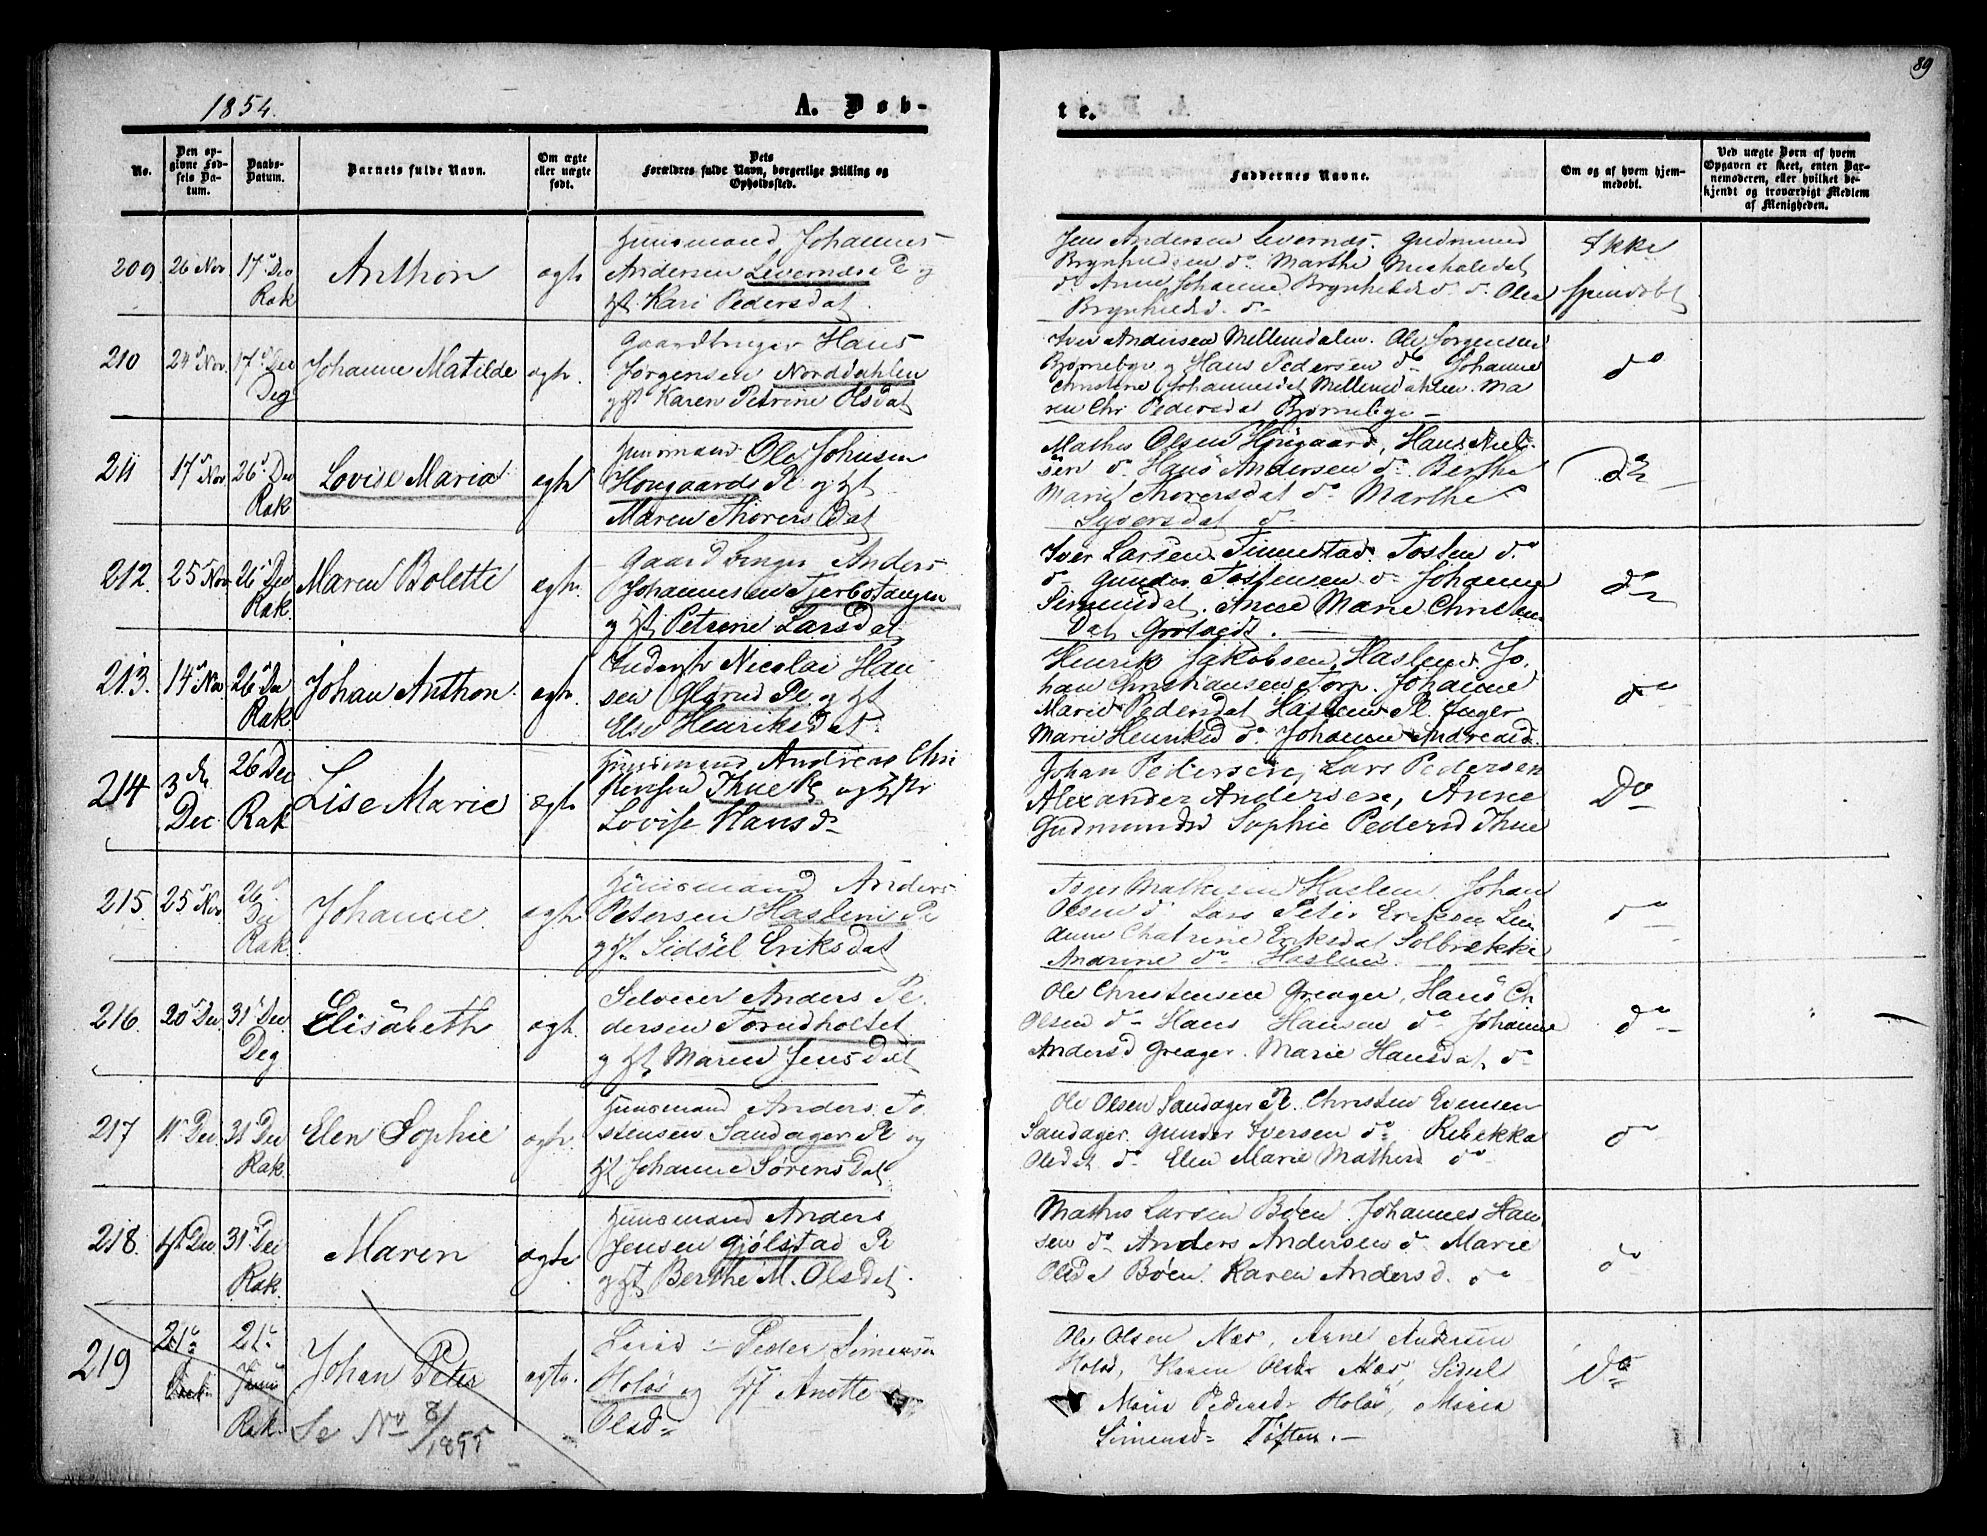 89
1854.
A. Døb-
te.
No.
Den op-
givne Fød-
sels Da-
tum.
Daabs-
Datum.
Barnets fulde Navn.
Om ægte
eller uægte
født.
Dets
Forældres fulde Navn, borgerlige Stilling og
Opholdssted.
Faddernes Navne.
Om og af hvem hjem-
medøbt.
Ved uægte Børn af hvem
Opgaven er skeet, enten Bar-
nemoderen, eller hvilket be-
kjendt og troværdigt Medlem
af Menigheden.
209 26 Nov 17 Dec Rak Anthon ægte
Huusmand Johannes
Andersen Levernæs Pl og
hst Kari Pedersdat.
Jens Andersen Levernæs. Gudmund
Brynhildsen do Marthe
do Anne Johanne do. Olea
do
Ikke
210 24 Nov. 17 Dec Deg Johanne Matilde ægte.
Gaardbruger Hans
Jørgensen Norddahlen
og hst Karen Petrine Olsdat
Iver Andersen Mellemdalen. Ole Jørgensen
Bjørnebye og Hans Pedersen do Johanne
Christine Johannesdat Mellemdahlen. Ma
ren Chr Pedersdat Bjørnebye
do
211 17 Nov 26 Dec Rak Lovise Maria ægte
Huusmand Ole Johnsen
Hougaard Pl. og hst
Maren Thorersdat
Mathis Olsen Hougaard, Hans Niel-
sen do Hans Andersen do Berthe
Marie Thorersdat do Marthe
Syversdat do
do
212. 25 Nov 26 Dec Rak. Maren Bolette ægte.
Gaardbruger Anders
Johannesen
og hst Petrine Larsdat
Iver Larsen. Tosten do
do Gunder Tostensen do Johanne
Simensdat. Anne Marie Christen
Dat
do
213. 14 Nov 26 Dec Rak. Johan Anthon. ægte.
Inderst Nicolai Han
sen Glørud Pl. og hst
Else Henriksdat.
Henrik Jakobsen Haslem. Jo.
han Christiansen Torp. Johanne
Marie Pedersdat Haslem Pl. Inger
Marie Henriksd do. Johanne Andreasd.
do
214 3 Dec 26 Dec Rak Lise Marie ægte
Huusmand Andreas Chri
stensen Thue Pl og hst
Lovise Hansd
Johan Pedersen, Lars Pedersen
Alexander Andersen, Anne
Gudmundsd Sophie Pedersd Thue
Do
215. 25 Nov 26 Dec Rak. Johanne ægte
Huusmand Anders
Petersen Haslem Pl
og hst. Sidsel Eriksdat
Mathisen Haslem Johan
Olsen do Lars Peter Eriksen
Chatrine Eriksdat Solbrække
Andrine do Haslem.
do
216. 20 Dec. 31 Dec. Deg Elisabeth ægt.
Selveier Anders Pe.
dersen Torudholtet
og hst Maren Jensdat
Ole Christensen Greager, Hans Ch
Olsen do Hans Hansen do Johanne
Andersd Greager. Marie Hansdat do
do
217 11 Dec 31 Dec Rak. Elen Sophie ægte.
Huusmand Anders To.
stensen Sandager Pl og
hst Johanne Sørensdat
Ole Olsen Sandager Pl. Christen Evensen
Sandager. Gunder Iversen do. Rebekka
Olsdat do Elen Marie Mathisd do
do
218. 4 Dec 31 Dec Rak. Maren ægte
Huusmand Anders
Jensen Gjølstad Pl
og hst Berthe M. Olsdat.
Mathis Larsen Bøen Johannes Han
sen do Anders Andersen do Marie
Olsdat Bøen. Karen Andersd. do
do
219 21 21 Rak. Johan Peter ægte.
Peder Simensen
Holøs og Anette
Olsd
Ole Olsen Næs, Arne Andersen
Holøs, Karen Olsd Næs, Sidsel
Marie Pedersd Holøs, Maria
Simensd Toften.
do
Se No 8/1855